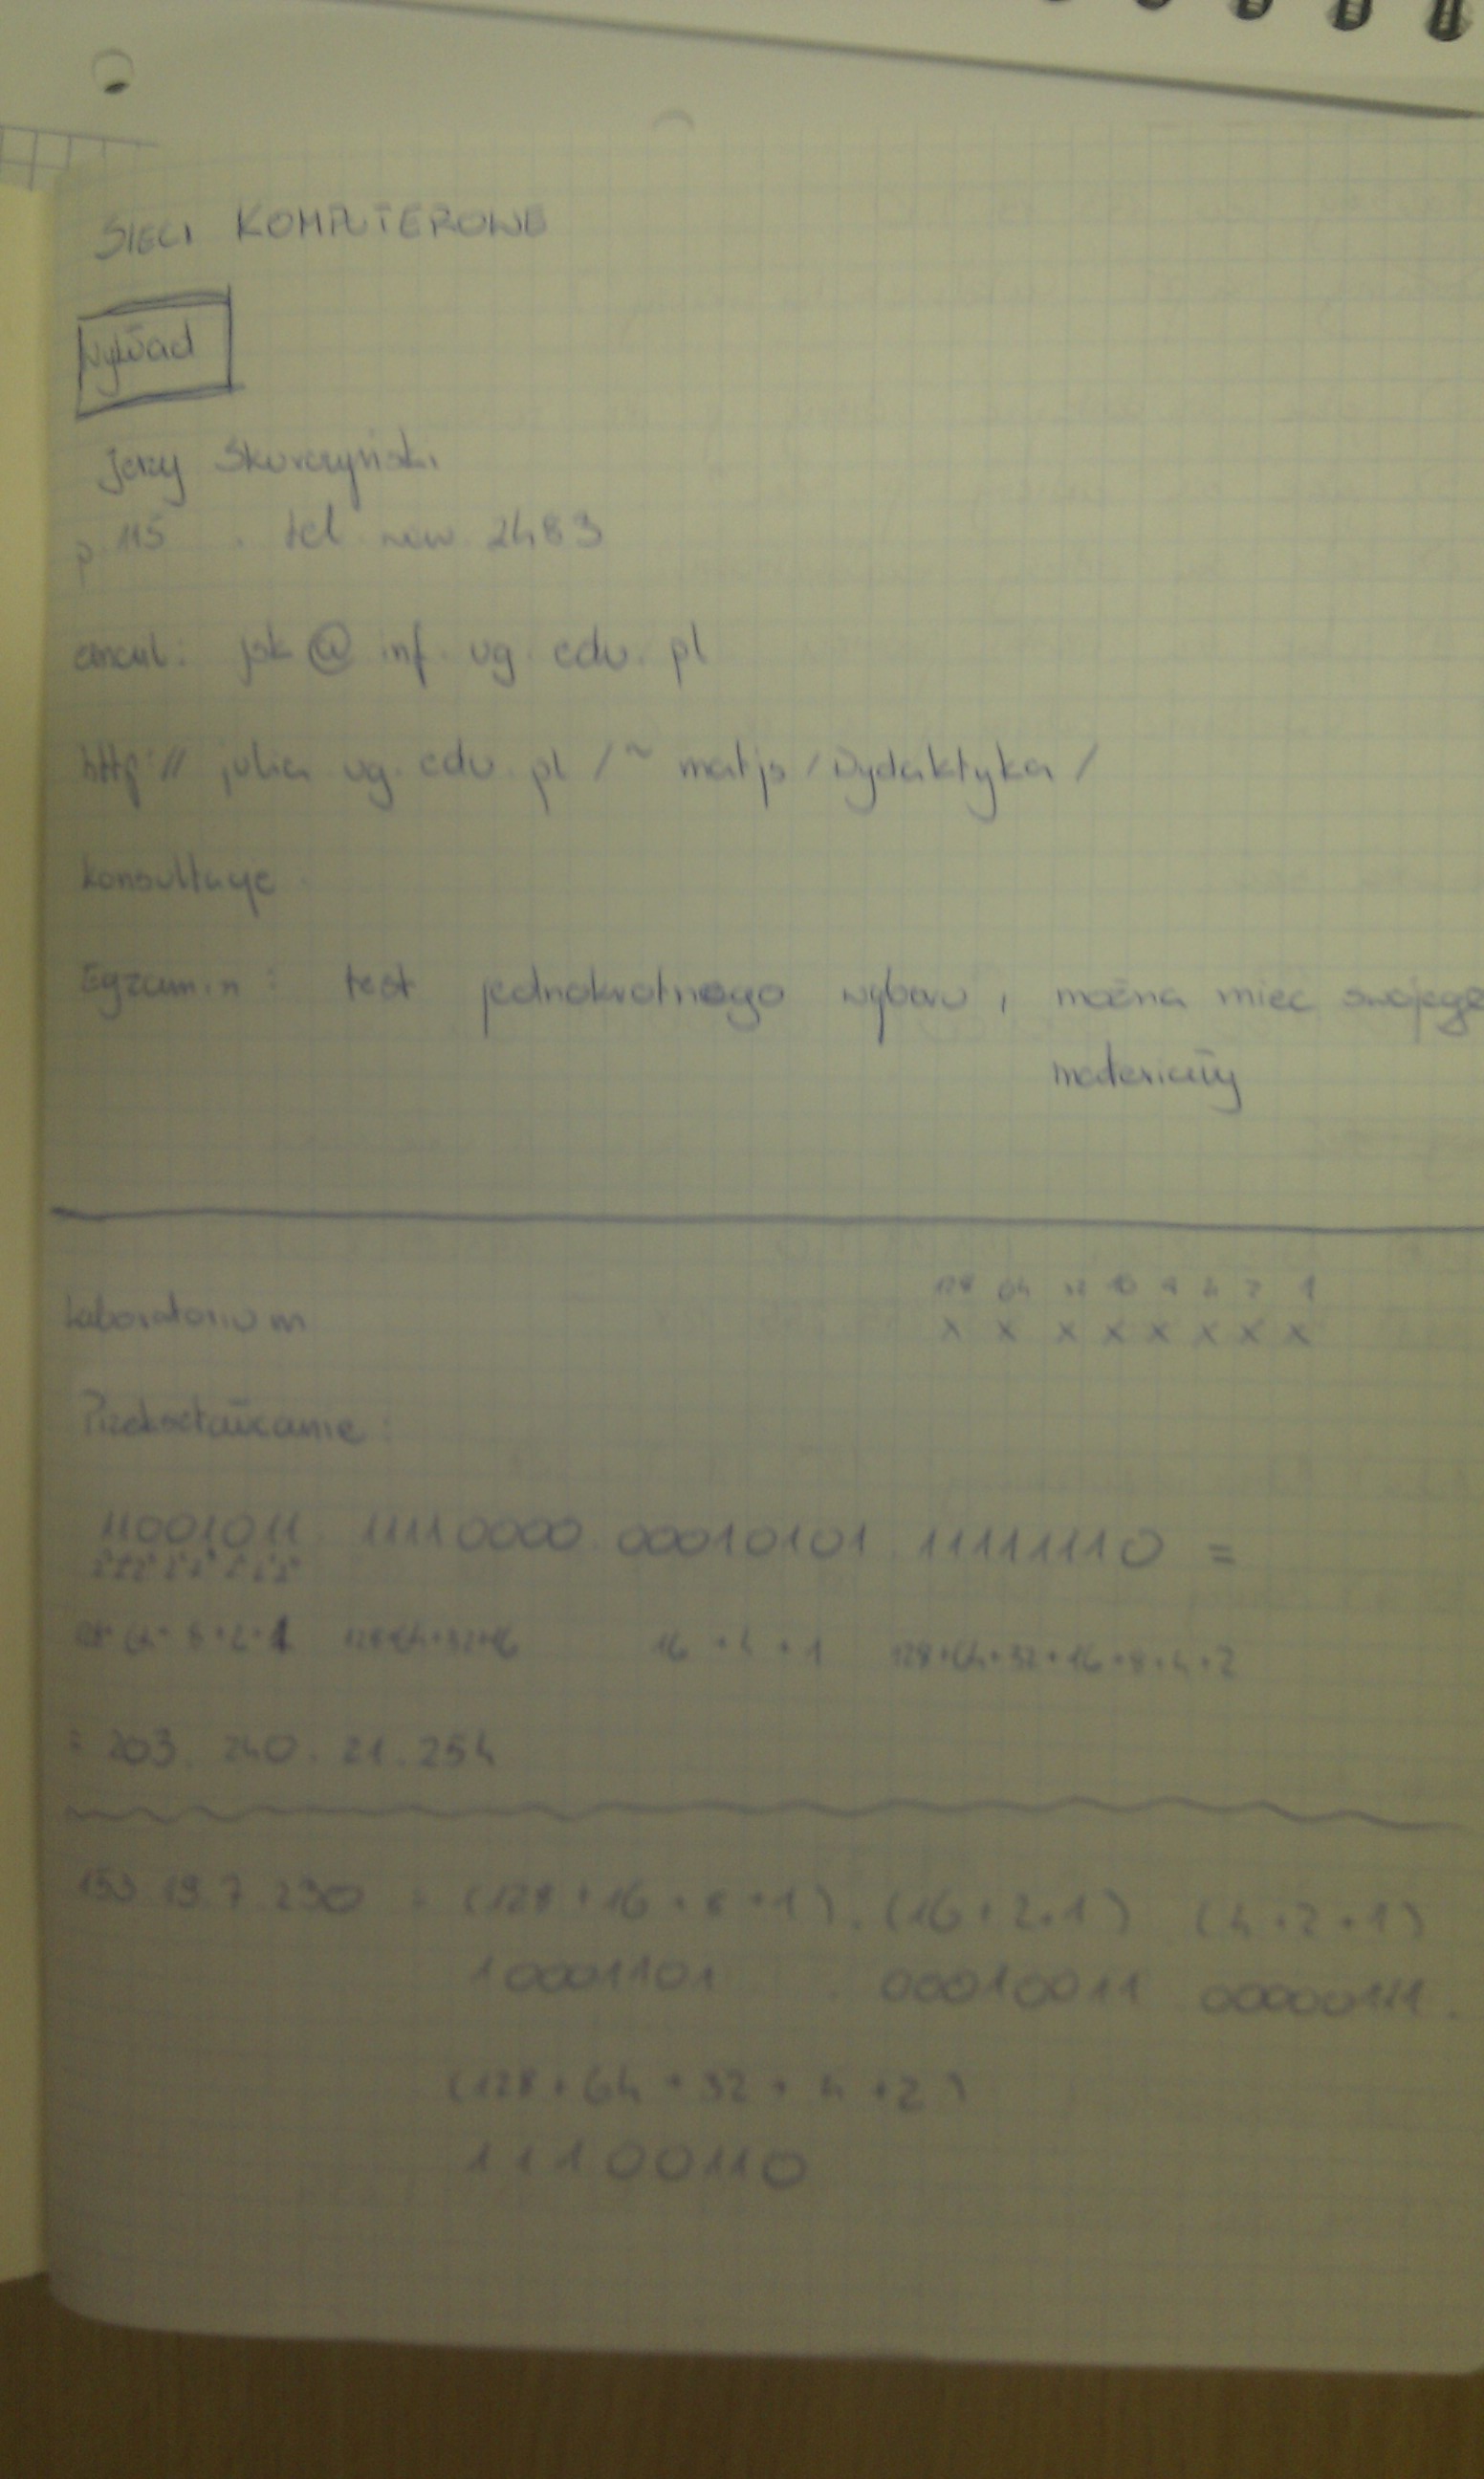 SIECI KOMPUTEROWE
wykład
Jerzy Skurczyński
p. 115 . tel. wew. 2483
email: jsk @ inf. ug. edu. pl
http:// julia ug. edu. pl / ~ matjs / Dydaktyka /
konsultacje
Egzamin: test jednokrotnego wyboru, można mieć swojego
materiały
128 64 32 16 8 4 2 1
Laboratorium
x x x x x x x x
Przekształcanie:
11001011. 11110000. 00010101. 11111110 =
128+64+8+2+1 128+64+32+16 16+4+1 128+64+32+16+8+4+2
= 203. 240. 21. 254
153 19.7 230 = (128+16+8+1). (16+2+1) (4+2+1)
10001101 . 00010011 00000111.
(128+64+32+4+2)
11100110